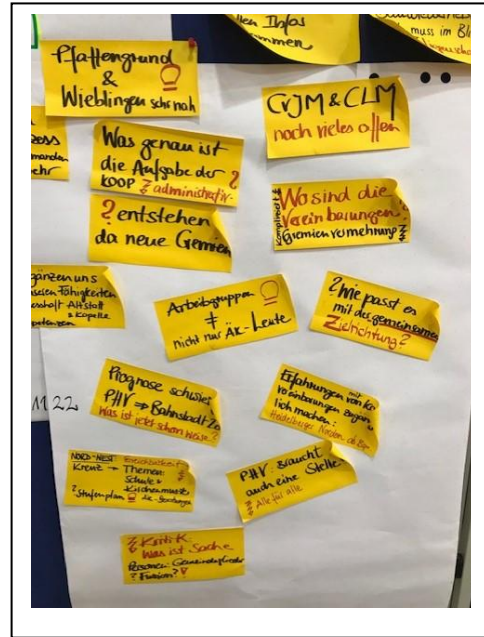 len Infos
ammen
muss im Bl
Pfaffengrund
&
Wieblingen sehr nah
CVJM & CLM
noch vieles offen
oss
manden
ehr
Was genau ist
die Aufgabe der ?
KOOP administrativ
? entstehen
da neue Gremien
Wo sind die
Vereinbarungen
Kompliziert
Gremienvermehrung
gänzen uns
seren Fähigkeiten
schaft Altstadt
& Kapelle
petenzen
Arbeitsgruppen
≠
nicht nur ÄK-Leute
? Wie passt es
mit der gemeinsamen
Zielrichtung?
11 22
Prognose schwier
PHV → Bahnstadt
Was ist jetzt schon
Erfahrungen von
mit
Vereinbarungen
lich machen:
Heidelberger Norden
NORD-NEST
Kreuz → Themen:
Schule &
Kirchenmusik
? Stufenplan
PHV: braucht
auch eine Stelle
Alle für alle
Kritik:
Was ist Sache
Personen Gemeindeglieder
? Fusion?